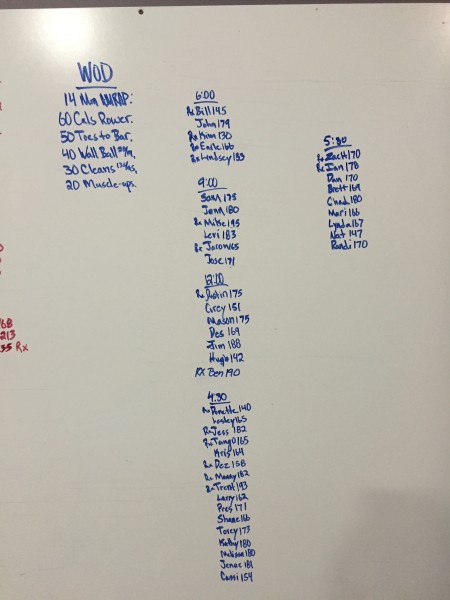 WOD
14 Min AMRAP:
60 Cals Rower.
50 Toes to Bar.
40 Wall Ball
30 Cleans
20 Muscle-ups.
6:00
Rx Bill 145
John 179
Rx Kim 130
Rx Earle 166
Rx Lindsey 153
9:00
Sam 175
Jann 180
Rx Mike 195
Levi 183
Rx Jason 165
Jose 171
12:00
Rx Dustin 175
Corey 151
Mason 175
Des 169
Jim 188
Hugh 142
RX Ben 190
4:30
Rx Danette 140
Lesley 165
Rx Jess 182
Rx Tango 165
Kris 164
Rx Dez 158
Rx Manny 182
Rx Trent 193
Larry 162
Pres 171
Shane 166
Torey 173
Kathy 180
Melissa 180
Jenae 181
Cassi 154
5:30
Rx Zach 170
Rx Ian 178
Dan 170
Brett 169
Chad 180
Mari 166
Lynda 167
Nat 147
Randi 170
68
213
35 Rx